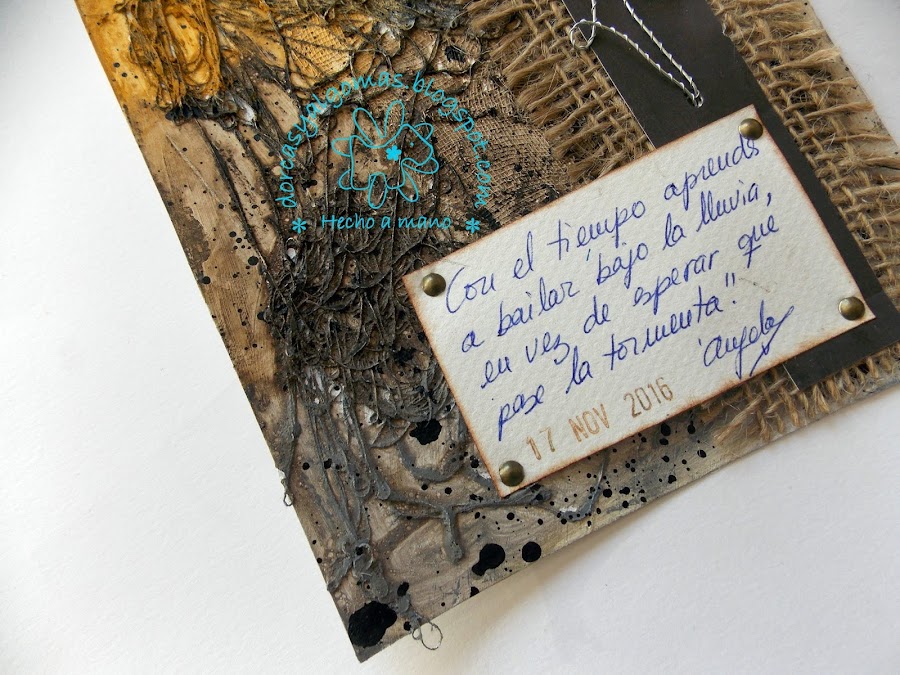 dorcasyalgomas.blogspot.com
* Hecho a mano *
Con el tiempo aprends
a bailar bajo la lluvia,
en vez de esperar que
pase la tormenta".
17 NOV 2016